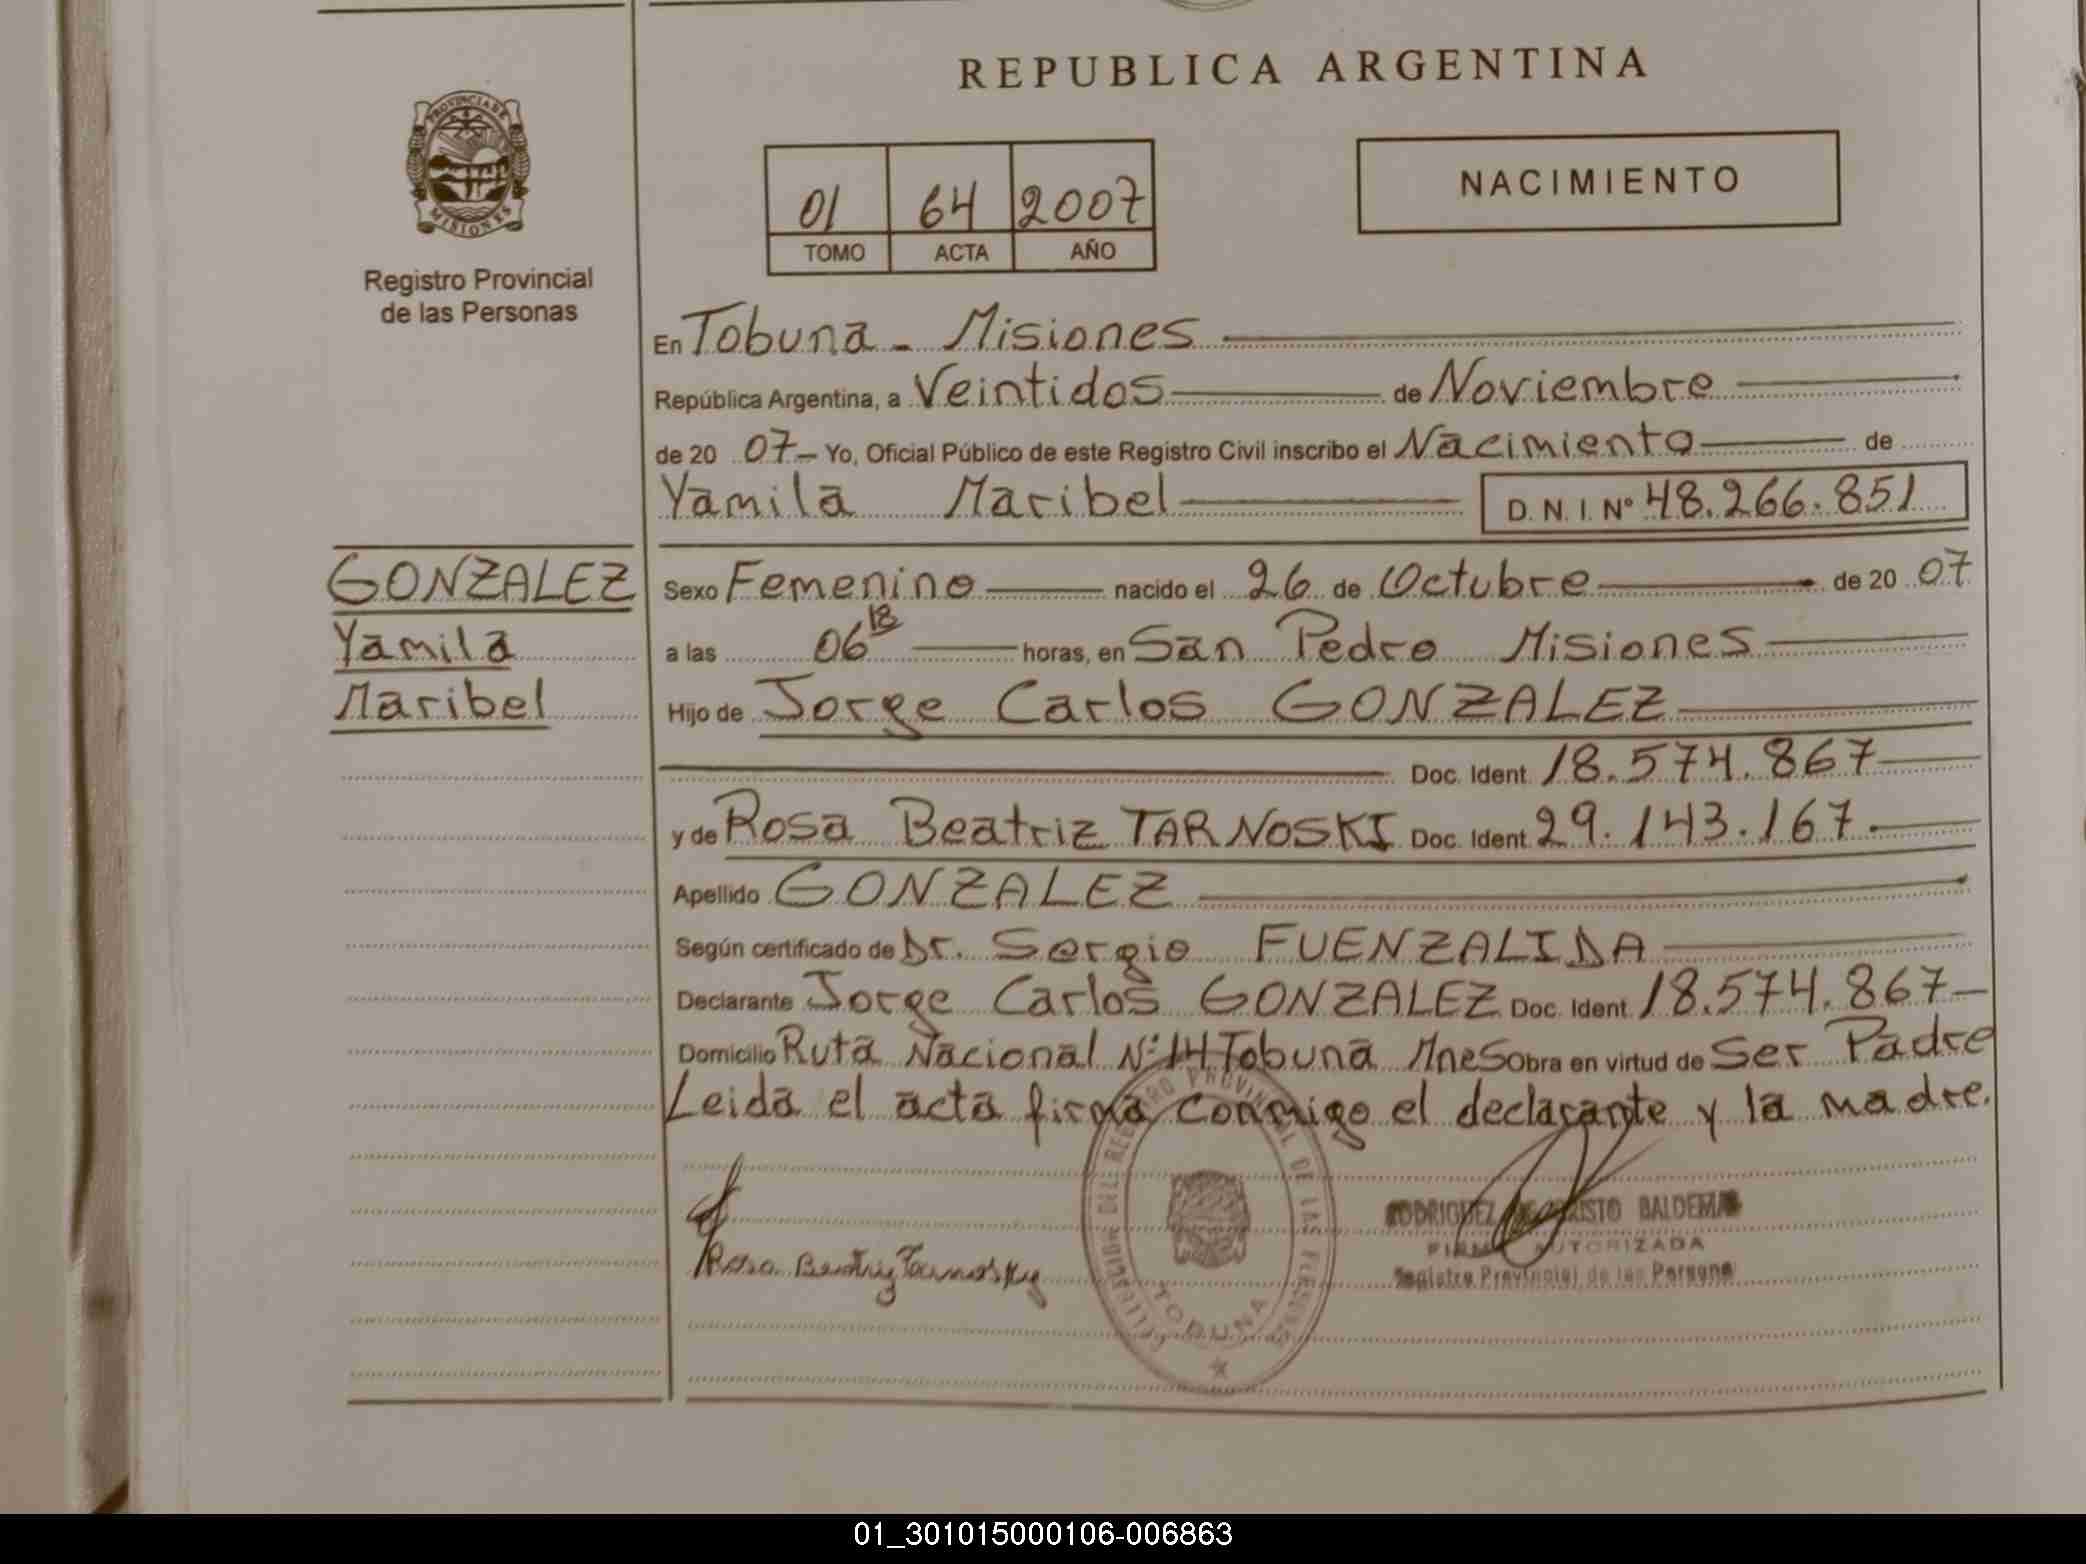 REPUBLICA ARGENTINA
PROVINCIA DE
MISIONES
Registro Provincial
de las Personas
01 64 2007
TOMO ACTA AÑO
NACIMIENTO
En Tobuna - Misiones
República Argentina, a Veintidos de Noviembre
de 20 07 - Yo, Oficial Público de este Registro Civil inscribo el Nacimiento de
Yamila Maribel D.N.I. Nº 48.266.851
GONZALEZ
Yamila
Maribel
Sexo Femenino nacido el 26 de Octubre de 20 07
a las 06 18 horas, en San Pedro Misiones
Hijo de Jorge Carlos GONZALEZ
Doc. Ident. 18.574.867
y de Rosa Beatriz TARNOSKI Doc. Ident. 29.143.167.
Apellido GONZALEZ
Según certificado de Dr. Sergio FUENZALIDA
Declarante Jorge Carlos GONZALEZ Doc. Ident. 18.574.867
Domicilio Ruta Nacional Nº 14 Tobuna Mnes Obra en virtud de Ser Padre
Leida el acta firma conmigo el declarante y la madre.
REGISTRO PROVINCIAL DE LAS PERSONAS
TOBUNA
RODRIGUEZ BALDEMAR
FIRMA AUTORIZADA
Registro Provincial de las Persona
Rosa Beatriz Tarnosky
01_301015000106-006863